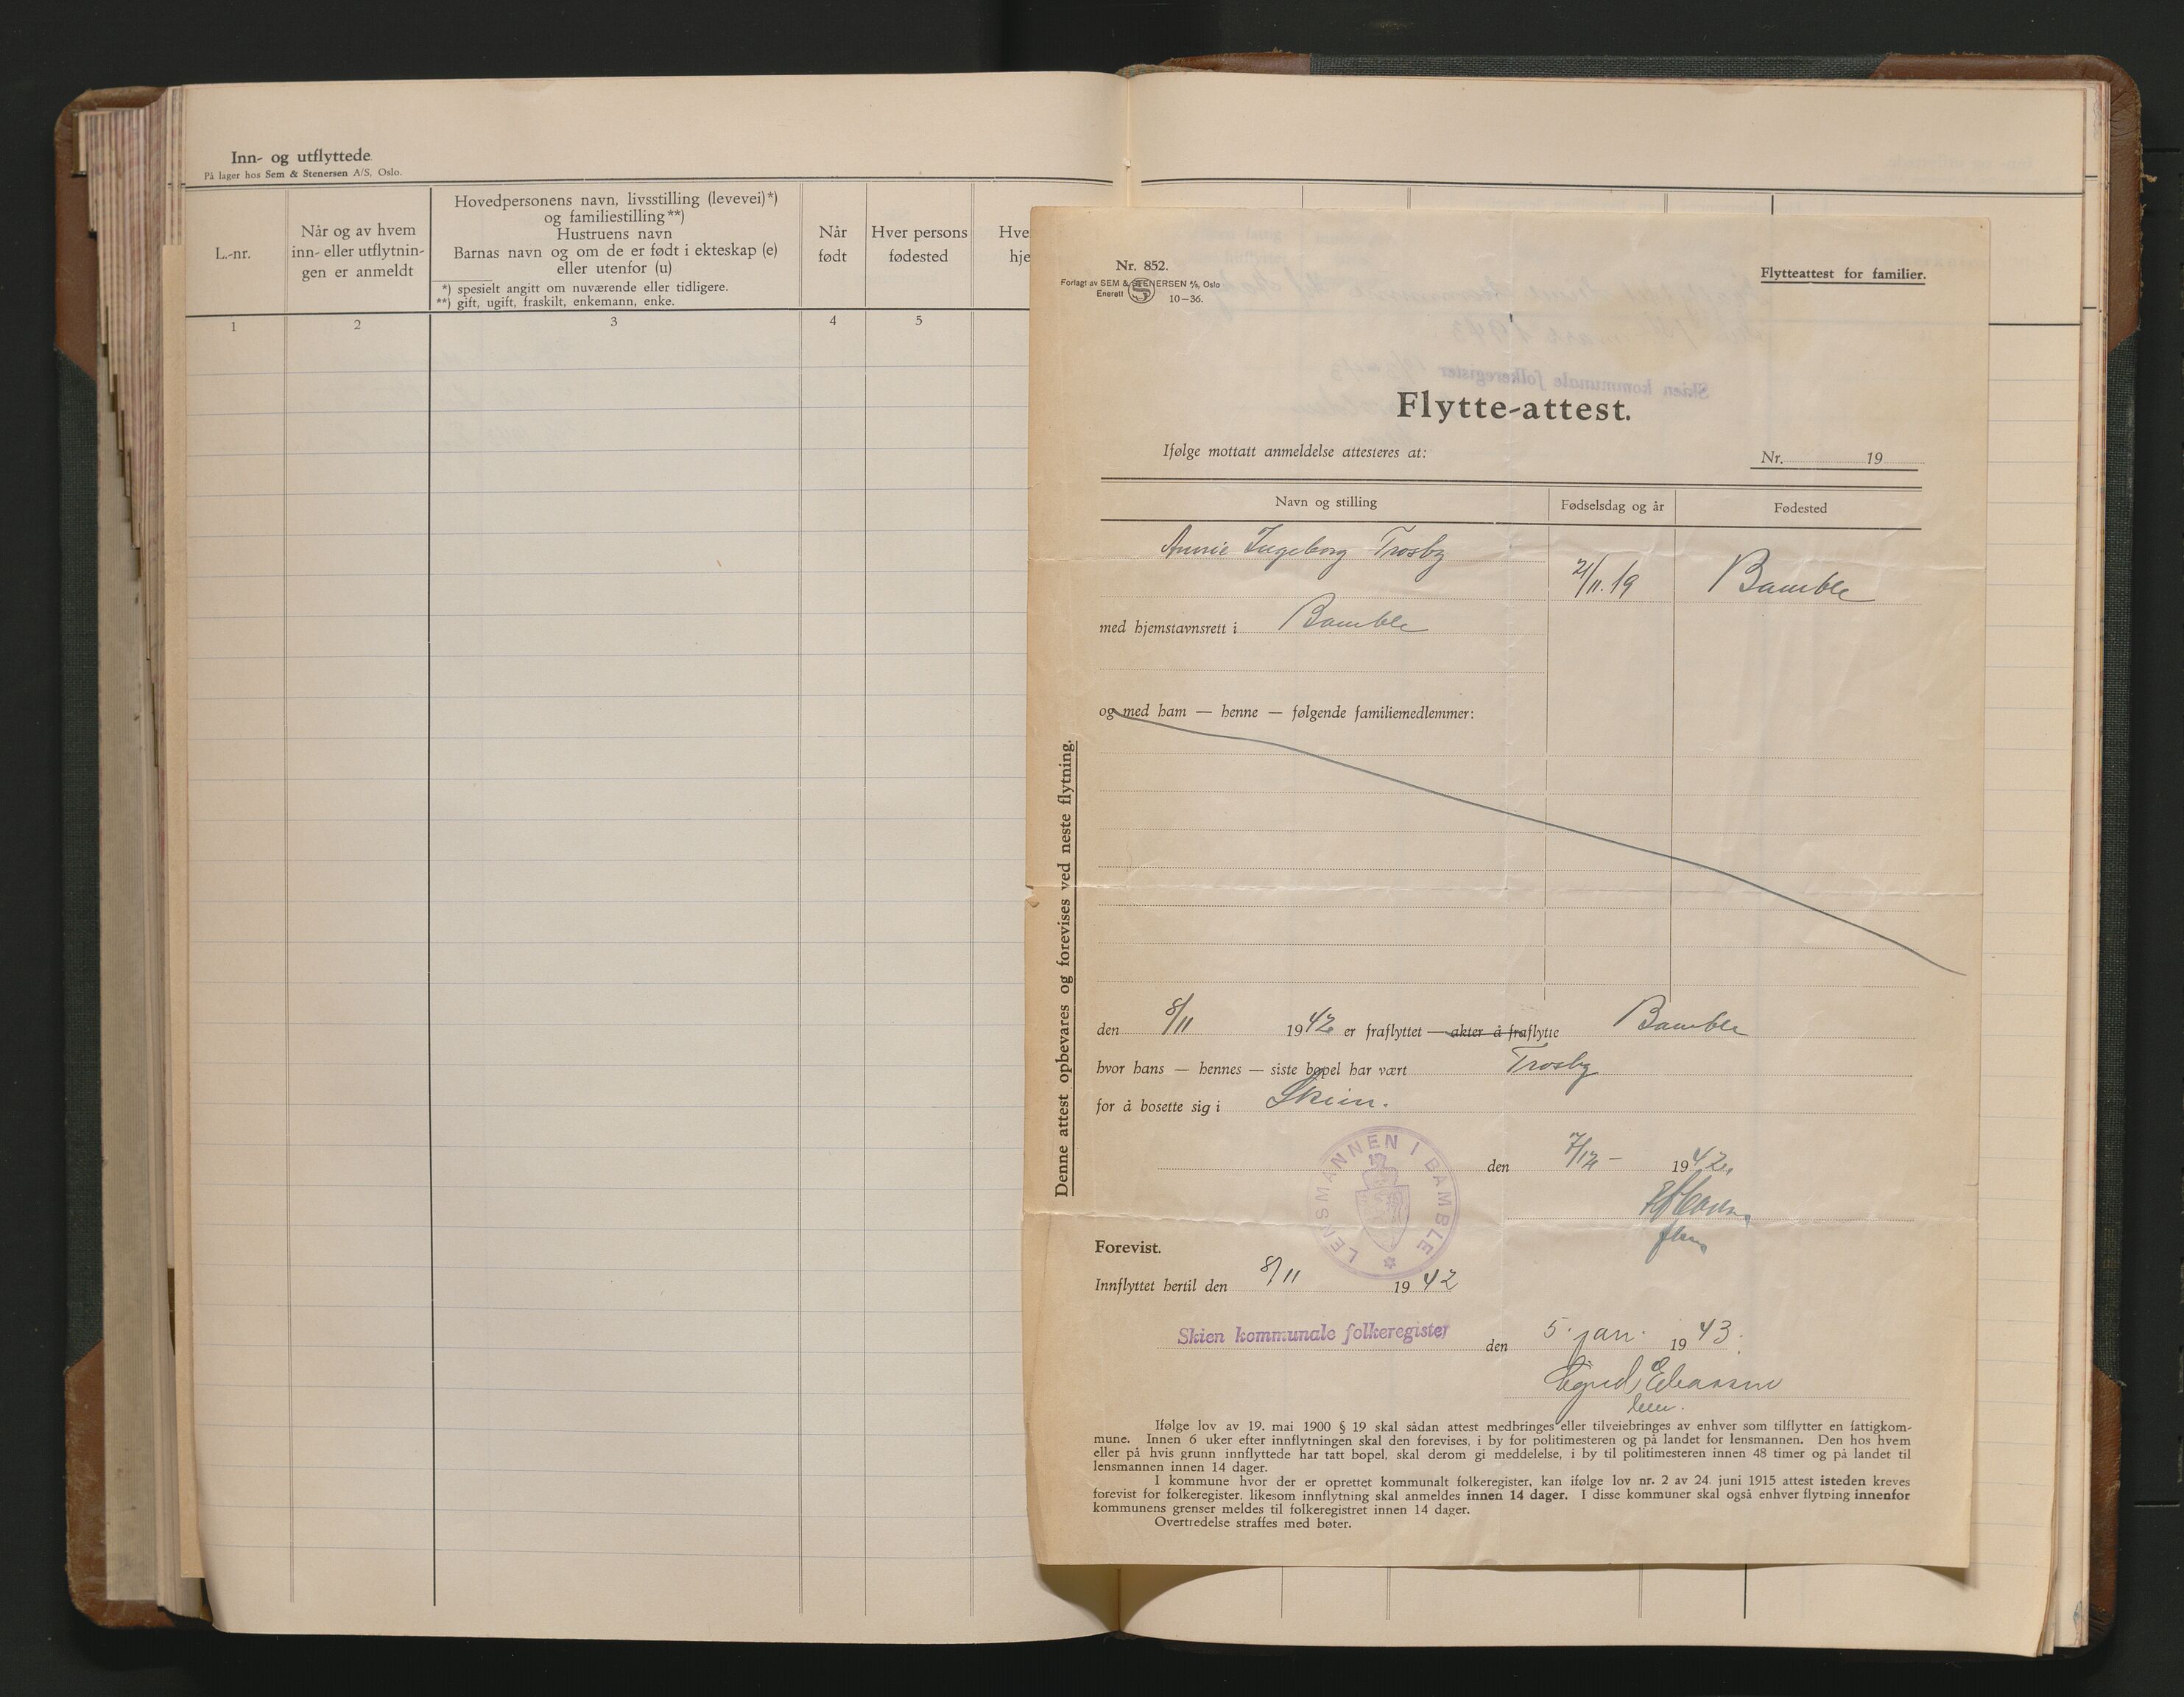 Inn- og utflyttede
På lager hos Sem & Stenersen A/S, Oslo.
L.-nr.
Når og av hvem
inn- eller utflytnin-
gen er anmeldt
Hovedpersonens navn, livsstilling (levevei)*)
og familiestilling**)
Hustruens navn
Barnas navn og om de er født i ekteskap (e)
eller utenfor (u)
*) spesielt angitt om nuværende eller tidligere.
**) gift, ugift, fraskilt, enkemann, enke.
Når
født
Hver persons
fødested
Hve
hje
1 2 3 4 5
Nr. 852.
Forlagt av SEM & STENERSEN A/S, Oslo
Enerett
10-36.
Flytteattest for familier.
Skien kommunale folkeregister
Flytte-attest.
Ifølge mottatt anmeldelse attesteres at:
Nr. 19
Navn og stilling Fødselsdag og år Fødested
Annie Ingeborg Trosby
21/11.19 Bamble
med hjemstavnsrett i Bamble
og med ham — henne — følgende familiemedlemmer:
Denne attest opbevares og forevises ved neste flytning.
den 8/11 1942 er fraflyttet — akter å fraflytte Bamble
hvor hans — hennes — siste bopel har vært Trosby
for å bosette sig i Skien.
LENSMANNEN I BAMBLE
den 7/12 - 1942.
Forevist.
Innflyttet hertil den 8/11 1942
Skien kommunale folkeregister den 5. jan. 1943.
Sigrid Eliassen
Ifølge lov av 19. mai 1900 § 19 skal sådan attest medbringes eller tilveiebringes av enhver som tilflytter en fattigkom-
mune. Innen 6 uker efter innflytningen skal den forevises, i by for politimesteren og på landet for lensmannen. Den hos hvem
eller på hvis grunn innflyttede har tatt bopel, skal derom gi meddelelse, i by til politimesteren innen 48 timer og på landet til
lensmannen innen 14 dager.
I kommune hvor der er oprettet kommunalt folkeregister, kan ifølge lov nr. 2 av 24. juni 1915 attest isteden kreves
forevist for folkeregister, likesom innflytning skal anmeldes innen 14 dager. I disse kommuner skal også enhver flytning innenfor
kommunens grenser meldes til folkeregistret innen 14 dager.
Overtredelse straffes med bøter.